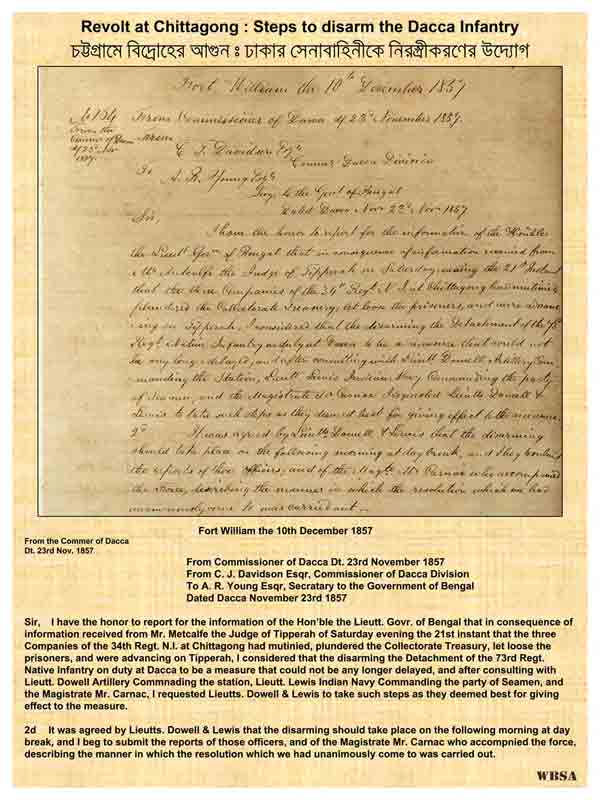 Revolt at Chittagong : Steps to disarm the Dacca Infantry
চট্টগ্রামে বিদ্রোহের আগুন ঃ ঢাকার সেনাবাহিনীকে নিরস্ত্রীকরণের উদ্যোগ
Fort William the 10th December 1857
No 154
From the
Commr of Dacca
dt 23rd Nov
1857.
From Commissioner of Dacca dt 23rd November 1857.
From
C. J. Davidson Esqr
Commr Dacca Division
To A. R. Young Esqr
Secy to the Govt of Bengal
Dated Dacca Novr 23rd Novr 1857
Sir,
I have the honor to report for the information of the Hon'ble
the Lieutt Govr of Bengal that in consequence of information received from
Mr Metcalfe the Judge of Tipperah on Saturday evening the 21st Instant
that the three Companies of the 34th Regt N. I. at Chittagong had mutinied
plundered the Collectorate Treasury, let loose the prisoners, and were advanc
ing on Tipperah, I considered that the disarming the Detachment of the 73rd
Regt Native Infantry on duty at Dacca to be a measure that could not
be any longer delayed, and after consulting with Lieutt Dowell Artillery Com
manding the Station, Lieutt Lewis Indian Navy Commanding the party
of Seamen, and the Magistrate Mr Carnac I requested Lieutts Dowell &
Lewis to take such steps as they deemed best for giving effect to the measure.
2d It was agreed by Lieutts Dowell & Lewis that the disarming
should take place on the following morning at day break, and I beg to submit
the reports of those officers, and of the Magte Mr Carnac who accompanied
the force, describing the manner in which the resolution which we had
unanimously come to was carried out.
Fort William the 10th December 1857
From the Commer of Dacca
Dt. 23rd Nov. 1857
From Commissioner of Dacca Dt. 23rd November 1857
From C. J. Davidson Esqr, Commissioner of Dacca Division
To A. R. Young Esqr, Secratary to the Government of Bengal
Dated Dacca November 23rd 1857
Sir, I have the honor to report for the information of the Hon'ble the Lieutt. Govr. of Bengal that in consequence of
information received from Mr. Metcalfe the Judge of Tipperah of Saturday evening the 21st instant that the three
Companies of the 34th Regt. N.I. at Chittagong had mutinied, plundered the Collectorate Treasury, let loose the
prisoners, and were advancing on Tipperah, I considered that the disarming the Detachment of the 73rd Regt.
Native Infantry on duty at Dacca to be a measure that could not be any longer delayed, and after consulting with
Lieutt. Dowell Artillery Commnading the station, Lieutt. Lewis Indian Navy Commanding the party of Seamen, and
the Magistrate Mr. Carnac, I requested Lieutts. Dowell & Lewis to take such steps as they deemed best for giving
effect to the measure.
2d It was agreed by Lieutts. Dowell & Lewis that the disarming should take place on the following morning at day
break, and I beg to submit the reports of those officers, and of the Magistrate Mr. Carnac who accompnied the force,
describing the manner in which the resolution which we had unanimously come to was carried out.
WBSA